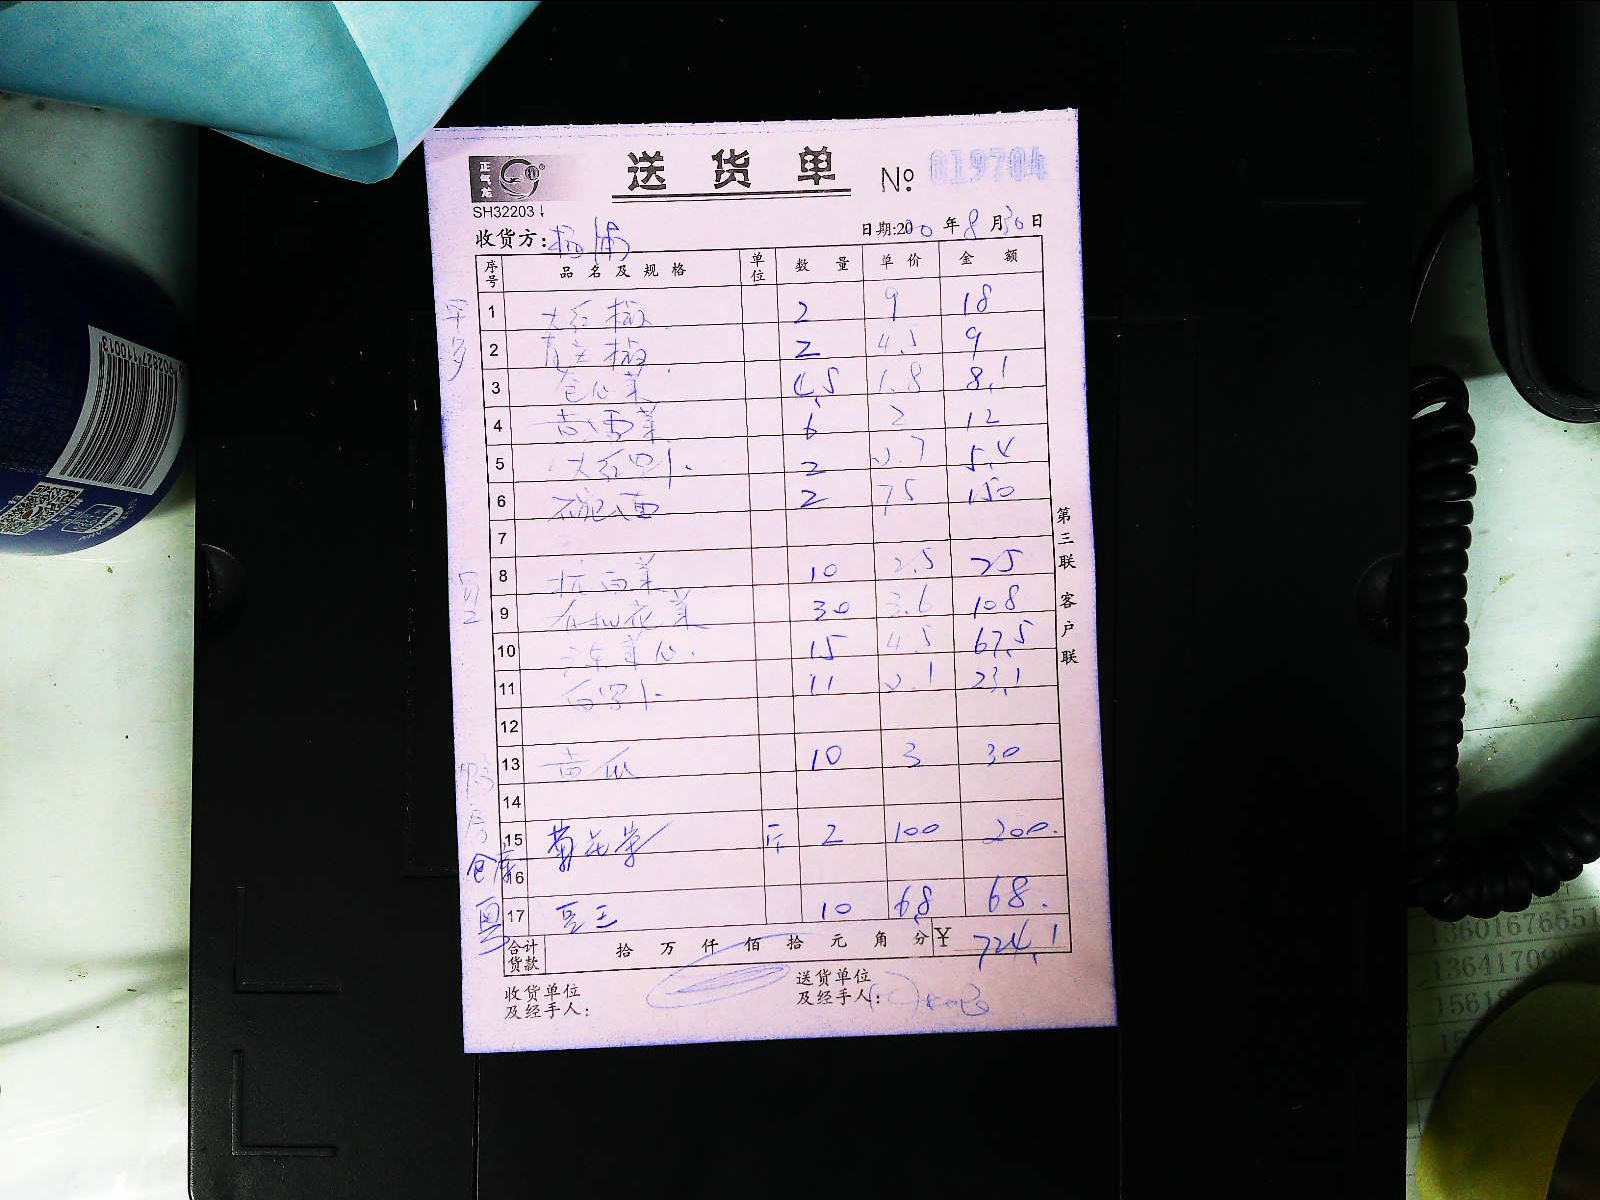 正气龙
送货单 № 019704
SH32203
收货方: 杨浦 日期:2020年8月30日
序号 品名及规格 单位 数量 单价 金额
1 大红椒 2 9 18
2 青尖椒 2 4.5 9
3 包心菜 4.5 1.8 8.1
4 2 12
6
5 大红罗卜 2 2.7 5.4
6 2 75 150
7
8 杭白菜 10 2.5 25
9 有机花菜 30 3.6 108
10 广东菜心 15 4.5 67.5
11 白罗卜 11 2.1 23.1
12
13 黄瓜 10 3 30
14
15 斤 2 100 200.
仓库
16
17 10 6.8 68.
合计货款 拾万仟佰拾元角分 ¥ 724.1
收货单位及经手人:
送货单位及经手人:
第三联 客户联
6902827110013
13601676651
1364170908
1561